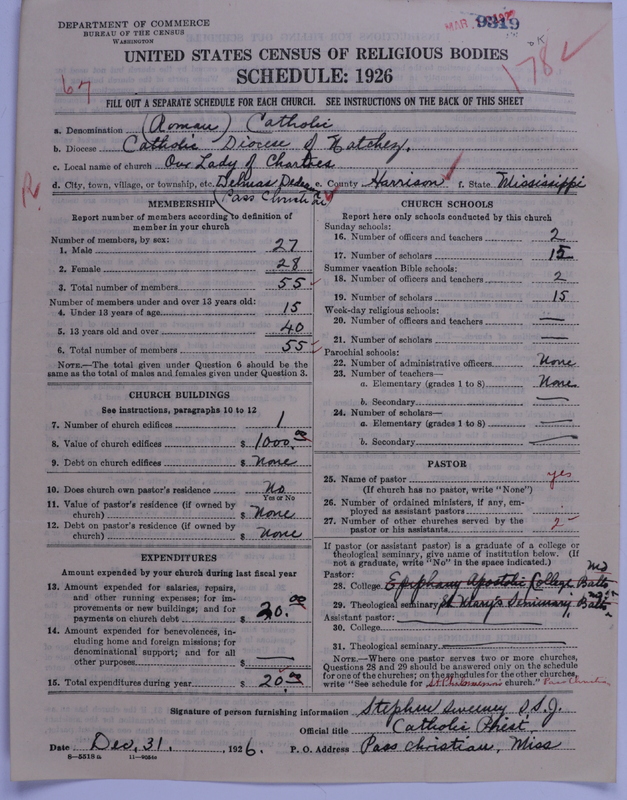 DEPARTMENT OF COMMERCE
BUREAU OF THE CENSUS
WASHINGTON
MAR
9319
OK
178
67
UNITED STATES CENSUS OF RELIGIOUS BODIES
SCHEDULE: 1926
FILL OUT A SEPARATE SCHEDULE FOR EACH CHURCH. SEE INSTRUCTIONS ON THE BACK OF THIS SHEET
a. Denomination (Roman) Catholic
b. Diocese Catholic Diocese of Natchez.
c. Local name of church Our Lady of Chartres
d. City, town, village, or township, etc. Delmas e. County Harrison f. State Mississippi
(Pass Christian)
R
MEMBERSHIP
Report number of members according to definition of
member in your church
Number of members, by sex:
1. Male 27
2. Female 28
3. Total number of members 55
Number of members under and over 13 years old:
4. Under 13 years of age 15
5. 13 years old and over 40
6. Total number of members 55
NOTE.—The total given under Question 6 should be
same as the total of males and females given under Question 3.
CHURCH BUILDINGS
See instructions, paragraphs 10 to 12
7. Number of church edifices 1
8. Value of church edifices $ 1000.00
9. Debt on church edifices $ None
10. Does church own pastor's residence No
Yes or No
11. Value of pastor's residence (if owned by
church) $ None
12. Debt on pastor's residence (if owned by
church) $ None
EXPENDITURES
Amount expended by your church during last fiscal year
13. Amount expended for salaries, repairs,
and other running expenses; for im-
provements or new buildings; and for
payments on church debt $ 20.00
14. Amount expended for benevolences, in-
cluding home and foreign missions; for
denominational support; and for all
other purposes $ —
15. Total expenditures during year $ 20.00
CHURCH SCHOOLS
Report here only schools conducted by this church
Sunday schools:
16. Number of officers and teachers 2
17. Number of scholars 15
Summer vacation Bible schools:
18. Number of officers and teachers 2
19. Number of scholars 15
Week-day religious schools:
20. Number of officers and teachers —
21. Number of scholars —
Parochial schools:
22. Number of administrative officers None
23. Number of teachers—
a. Elementary (grades 1 to 8) None
b. Secondary —
24. Number of scholars—
a. Elementary (grades 1 to 8) —
b. Secondary —
PASTOR
25. Name of pastor yes
(If church has no pastor, write "None")
26. Number of ordained ministers, if any, em-
ployed as assistant pastors
27. Number of other churches served by the
pastor or his assistants 2
If pastor (or assistant pastor) is a graduate of a college or
theological seminary, give name of institution below. (If
not a graduate, write "No" in the space indicated.)
Pastor: Md
28. College Epiphany Apostolic College Balto
29. Theological seminary St Mary's Seminary Balto
Assistant pastor:
30. College
31. Theological seminary
NOTE.—Where one pastor serves two or more churches,
Questions 28 and 29 should be answered only on the schedule
for one of the churches; on the schedules for the other churches,
write "See schedule for St. Philomena's church." Pass Christian
Signature of person furnishing information Stephen Sweeney S.S.J.
Official title Catholic Priest.
Date Dec, 31, 1926. P. O. Address Pass Christian, Miss
8—5518a 11—9054a